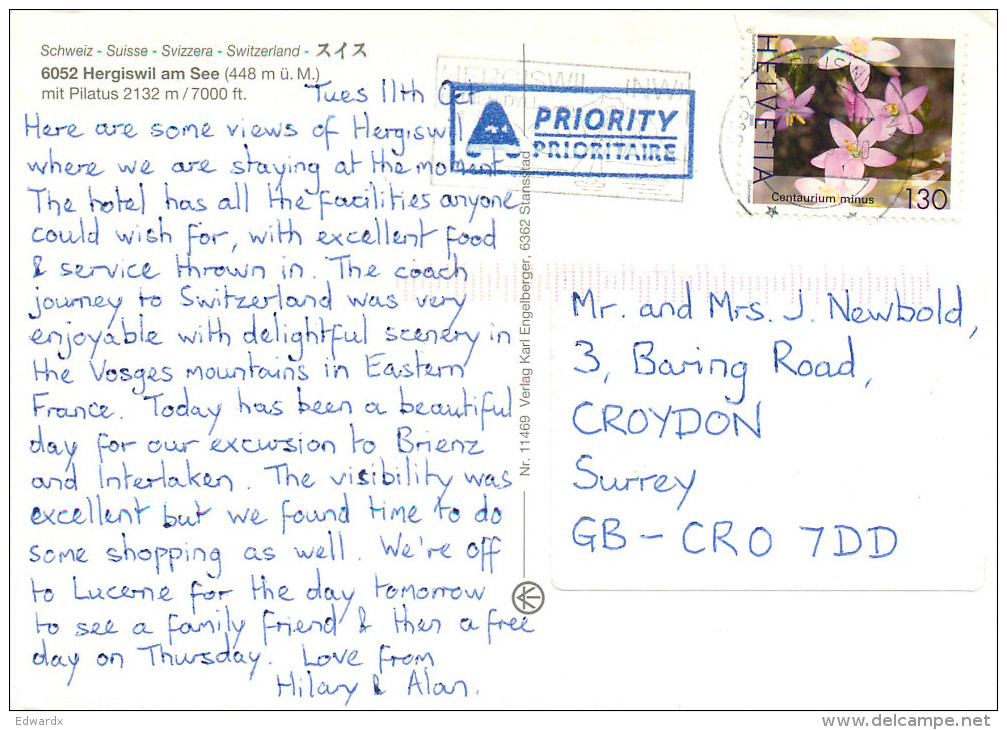 Schweiz - Suisse - Svizzera - Switzerland - スイス
6052 Hergiswil am See (448 m ü. M.)
mit Pilatus 2132 m / 7000 ft.
Tues 11th Oct
Here are some views of Hergiswil
where we are staying at the moment
The hotel has all the facilities anyone
could wish for, with excellent food
& service thrown in. The coach
journey to Switzerland was very
enjoyable with delightful scenery in
the Vosges mountains in Eastern
France. Today has been a beautiful
day for our excursion to Brienz
and Interlaken. The visibility was
excellent but we found time to do
some shopping as well. We're off
to Lucerne for the day tomorrow
to see a family friend & then a free
day on Thursday. Love from
Hilary & Alan.
Nr. 11469 Verlag Karl Engelberger, 6362 Stansstad
HERGISWIL (NW)
A PRIORITY
PRIORITAIRE
HELVETIA
Centaurium minus
130
Mr. and Mrs. J. Newbold,
3, Baring Road,
CROYDON
Surrey
GB - CR0 7DD
Edwardx
www.delcampe.net